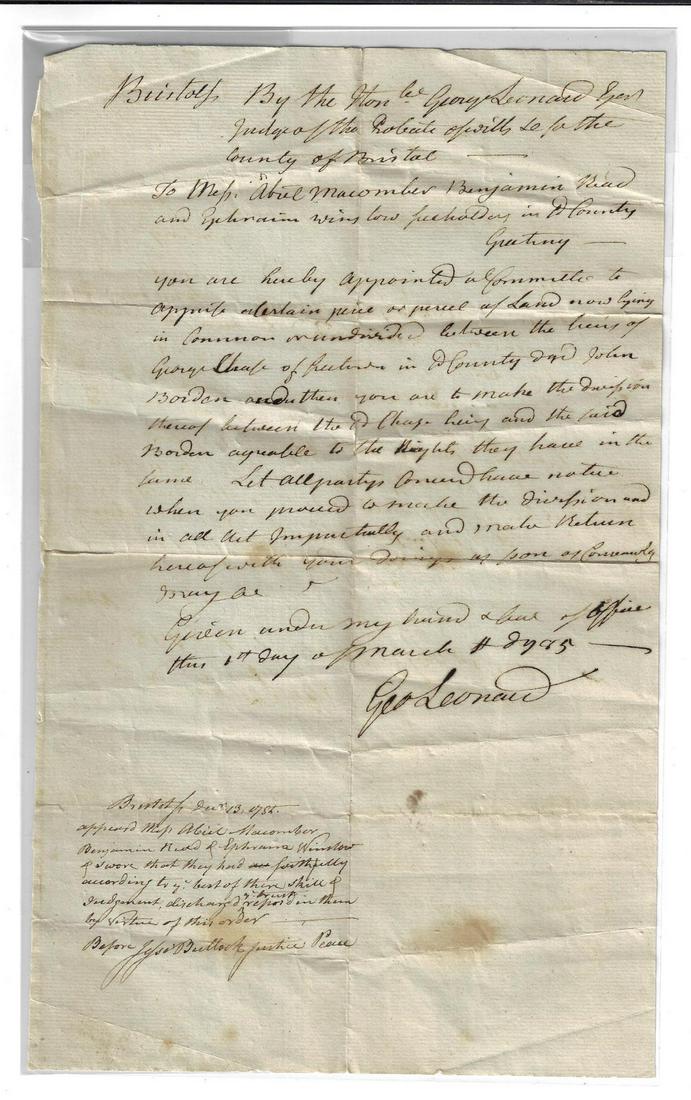 Bristol ss By the Honble George Leonard Esqr
Judge of the Probate of wills &c for the
County of Bristol
To Messrs Abiel Macomber Benjamin Read
and Ephraim Winslow freeholders in sd County
Greeting
you are hereby appointed a Committee to
apprise a certain peice or percel of Land now lying
in Common or undivided between the heirs of
George Chase of freetown in sd County and John
Borden and then you are to make the division
thereof between the sd Chase heirs and the said
Borden agreable to the Rights they have in the
same Let all partys Concernd have notice
when you proceed to make the division and
in all Act Impartially and make Return
hereof with your Doings as soon as Conveniently
may be
Given under my hand & Seal of Office
this 1st day of March AD 1785
Geo Leonard
Bristol ss Decr 13. 1785.
appeard Messrs Abiel Macomber
Benjamin Read & Ephraim Winslow
& swore that they had faithfully
according to ye best of there skill &
Judgement dischargd ye trust reposd in them
by virtue of this order
Before Jesse Bullock Justice Peace